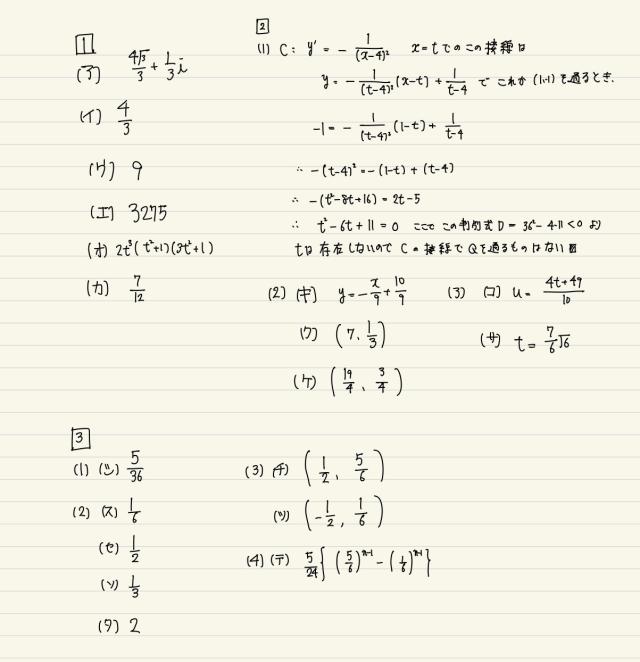 1
(ア) 4√3/3 + 1/3 i
(イ) 4/3
(ウ) 9
(エ) 3275
(オ) 2t³(t²+1)(3t²+1)
(カ) 7/12
2
(1) C: y' = - 1/(x-4)² x=tでのこの接線は
y = - 1/(t-4)² (x-t) + 1/(t-4) で これが (1,-1) を通るとき.
-1 = - 1/(t-4)² (1-t) + 1/(t-4)
∴ -(t-4)² = -(1-t) + (t-4)
∴ -(t²-8t+16) = 2t-5
∴ t²-6t+11 = 0 ここで この判別式 D = 36-4·11 < 0 より
tは存在しないので Cの接線で Qを通るものはない
(2) (キ) y = - x/9 + 10/9
(ク) (7, 1/3)
(ケ) (19/4, 3/4)
(3) (コ) u = (4t+49)/10
(サ) t = 7/6 √6
3
(1) (シ) 5/36
(2) (ス) 1/6
(セ) 1/2
(ソ) 1/3
(タ) 2
(3) (チ) (1/2, 5/6)
(ツ) (-1/2, 1/6)
(4) (テ) 5/24 { (5/6)ⁿ⁻¹ - (1/6)ⁿ⁻¹ }